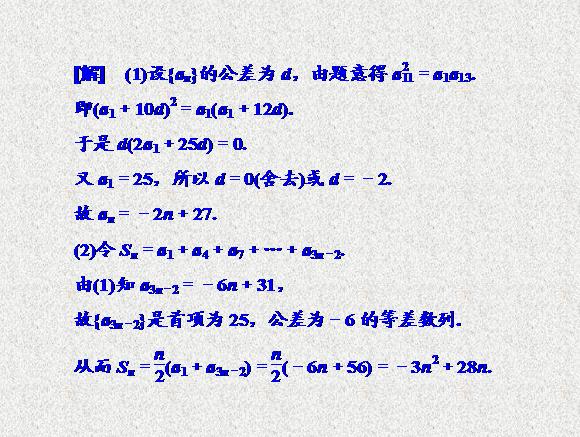 [解] (1)设{aₙ}的公差为 d，由题意得 a²₁₁＝a₁a₁₃.
即(a₁＋10d)²＝a₁(a₁＋12d).
于是 d(2a₁＋25d)＝0.
又 a₁＝25，所以 d＝0(舍去)或 d＝－2.
故 aₙ＝－2n＋27.
(2)令 Sₙ＝a₁＋a₄＋a₇＋…＋a₃ₙ₋₂.
由(1)知 a₃ₙ₋₂＝－6n＋31，
故{a₃ₙ₋₂}是首项为 25，公差为－6 的等差数列.
从而 Sₙ＝n/2(a₁＋a₃ₙ₋₂)＝n/2(－6n＋56)＝－3n²＋28n.